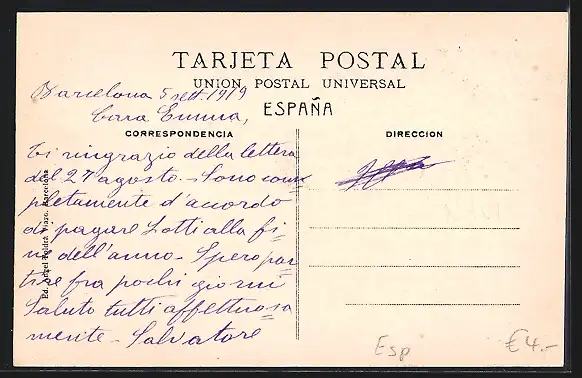 TARJETA POSTAL
UNION POSTAL UNIVERSAL
ESPAÑA
Barcelona 5 sett. 1919
Cara Emma,
CORRESPONDENCIA
DIRECCION
Ti ringrazio della lettera
del 27 agosto. Sono com=
pletamente d'accordo
di pagare Lotti alla fi=
ne dell'anno. Spero par=
tire fra pochi giorni
Saluto tutti affettuosa=
mente - Salvatore
Barcelona
Esp
€4.-